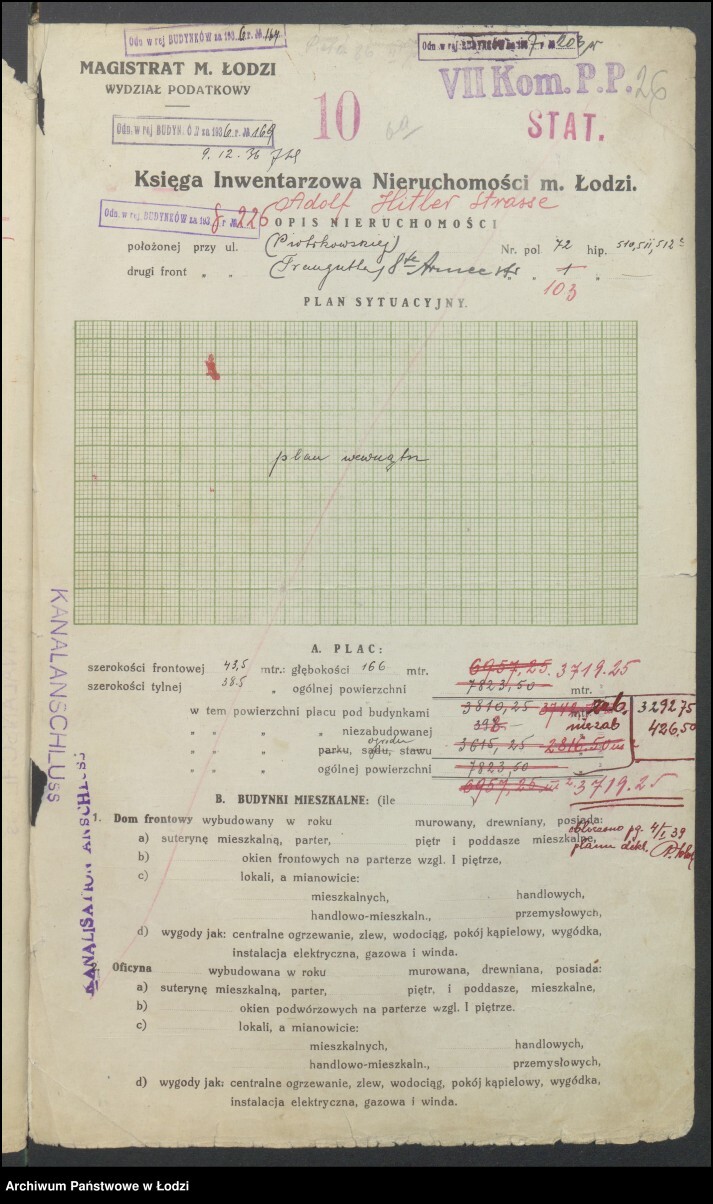 Odn. w rej. BUDYNKÓW za 1936 r. №
Odn. w rej. BUDYNKÓW za 1937 r. № 203
MAGISTRAT M. ŁODZI
WYDZIAŁ PODATKOWY
VII Kom. P.P. 26
10
STAT.
Odn. w rej. BUDYN. 1936 r. № 169
9. 12. 36
Księga Inwentarzowa Nieruchomości m. Łodzi.
Adolf Hitler Strasse
Odn. w rej. BUDYNKÓW za 1938 r. № 226
OPIS NIERUCHOMOŚCI
położonej przy ul. (Piotrkowskiej) Nr. pol 72 hip. 510, 511, 512
drugi front „ „ (Traugutta) 8te Armee str „ 1 „ —
103
PLAN SYTUACYJNY.
plan wewnątrz
KANALANSCHLUSS
KANALISATION ANSCHLUSS
A. PLAC:
szerokości frontowej 43,5 mtr.: głębokości 166 mtr. 6957,25 3719.25
szerokości tylnej 38.5 „ ogólnej powierzchni 7823,50 mtr.
w tem powierzchni placu pod budynkami 3810,25 zab. 3292 75
„ „ „ „ niezabudowanej 398 niezab 426,50
ogrodu
„ „ „ parku, sadu, stawu 3615,25 2816.50 m²
„ ogólnej powierzchni 7823,50
6957,25 m² 3719.25
B. BUDYNKI MIESZKALNE: (ile
1. Dom frontowy wybudowany w roku murowany, drewniany, posiada:
obliczono pg. 4/I 39
planu dekl.
a) suterynę mieszkalną, parter, piętr i poddasze mieszkalne,
b) okien frontowych na parterze wzgl. I piętrze,
c) lokali, a mianowicie:
mieszkalnych, handlowych,
handlowo-mieszkaln., przemysłowych,
d) wygody jak: centralne ogrzewanie, zlew, wodociąg, pokój kąpielowy, wygódka,
instalacja elektryczna, gazowa i winda.
Oficyna wybudowana w roku murowana, drewniana, posiada:
a) suterynę mieszkalną, parter, piętr. i poddasze, mieszkalne,
b) okien podwórzowych na parterze wzgl. I piętrze.
c) lokali, a mianowicie:
mieszkalnych, handlowych,
handlowo-mieszkaln., przemysłowych,
d) wygody jak: centralne ogrzewanie, zlew, wodociąg, pokój kąpielowy, wygódka,
instalacja elektryczna, gazowa i winda.
Archiwum Państwowe w Łodzi